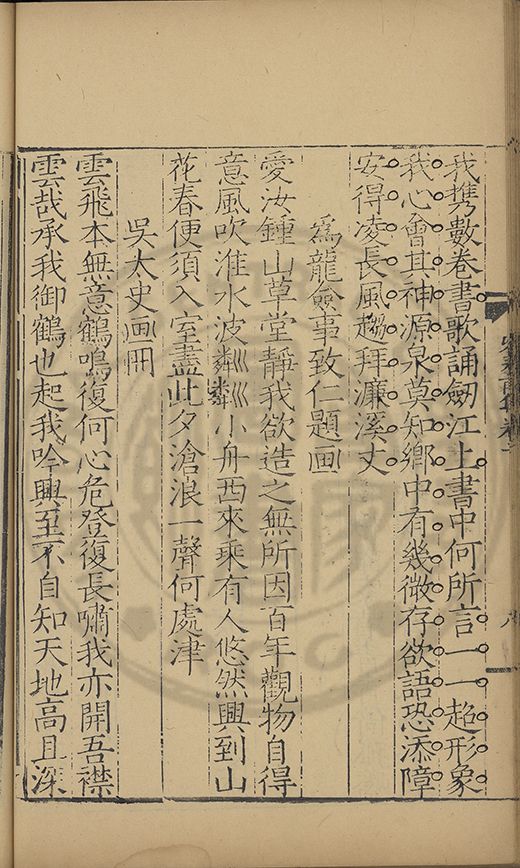 我携數卷書歌誦劒江上書中何所言一一超形象
我心會其神源泉莫知鄉中有幾微存欲語恐添障
安得凌長風趨拜濂溪丈
爲龍僉事致仁題画
愛汝鍾山草堂靜我欲造之無所因百年觀物自得
意風吹淮水波粼粼小舟西來乘有人悠然興到山
花春便須入室盡此夕滄浪一聲何處津
吳太史画冊
雲飛本無意鶴鳴復何心危登復長嘯我亦開吾襟
雲哉承我御鶴也起我吟興至不自知天地高且深